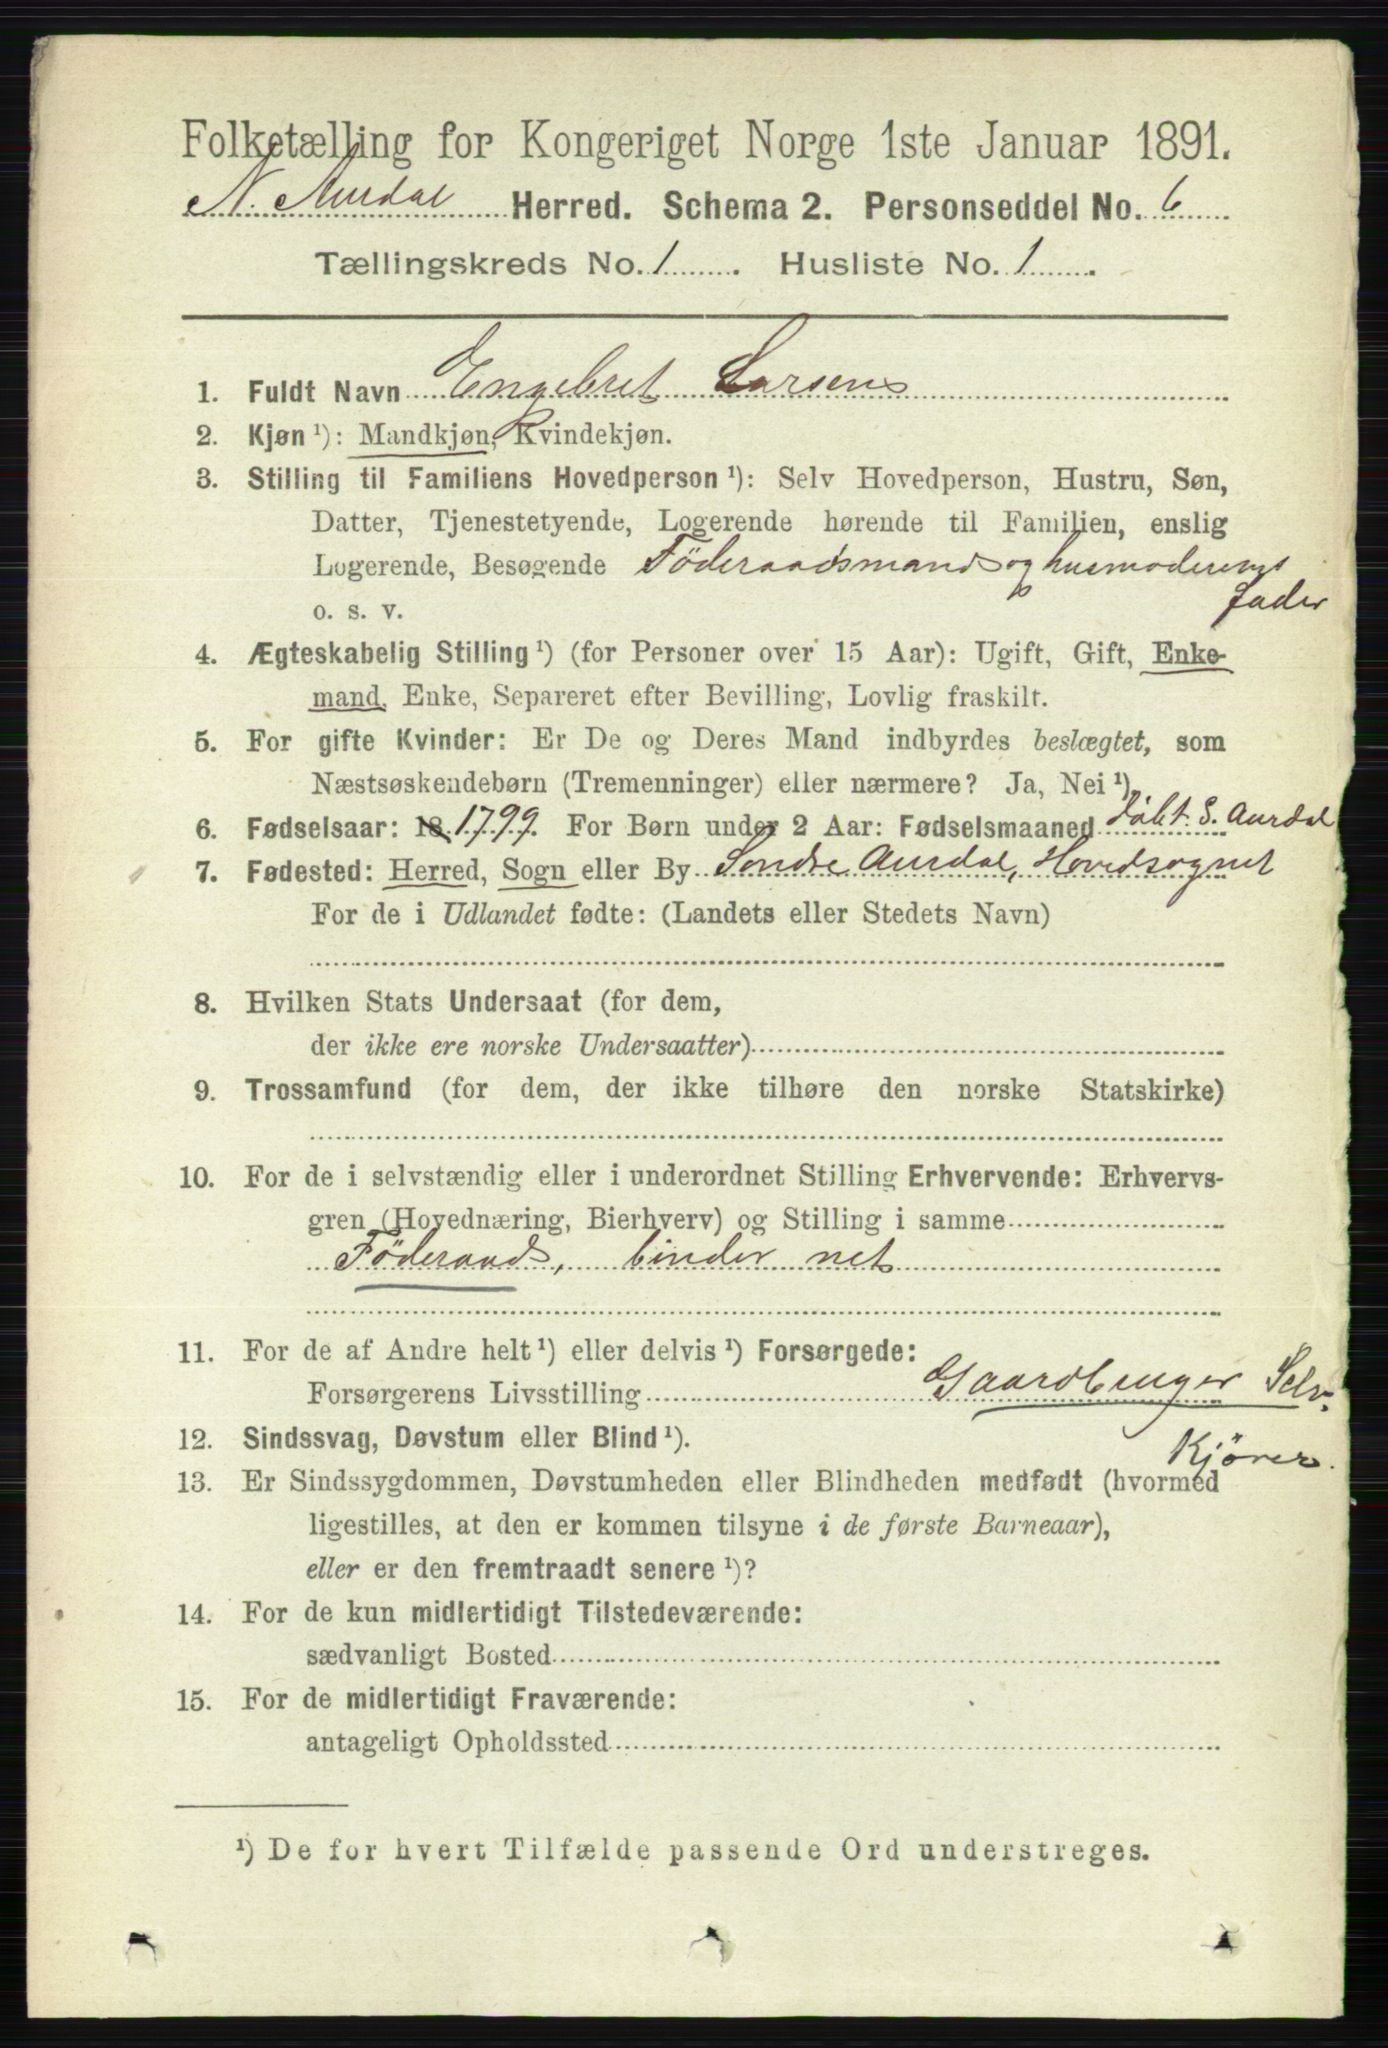 Folketælling for Kongeriget Norge 1ste Januar 1891.
N. Aurdal Herred. Schema 2. Personseddel No. 6
Tællingskreds No. 1 . Husliste No. 1 .
1. Fuldt Navn Engebret Larsen
2. Kjøn ¹): Mandkjøn, Kvindekjøn.
3. Stilling til Familiens Hovedperson ¹): Selv Hovedperson, Hustru, Søn,
Datter, Tjenestetyende, Logerende hørende til Familien, enslig
Logerende, Besøgende Föderaadsmand og husmoderens
fader
o. s. v.
4. Ægteskabelig Stilling ¹) (for Personer over 15 Aar): Ugift, Gift, Enke-
mand, Enke, Separeret efter Bevilling, Lovlig fraskilt.
5. For gifte Kvinder: Er De og Deres Mand indbyrdes beslægtet, som
Næstsøskendebørn (Tremenninger) eller nærmere? Ja, Nei ¹).
6. Fødselsaar: 18 1799. For Børn under 2 Aar: Fødselsmaaned döbt S. Aurdal
7. Fødested: Herred, Sogn eller By Söndre Aurdal, Hovedsognet
For de i Udlandet fødte: (Landets eller Stedets Navn)
8. Hvilken Stats Undersaat (for dem,
der ikke ere norske Undersaatter)
9. Trossamfund (for dem, der ikke tilhøre den norske Statskirke)
10. For de i selvstændig eller i underordnet Stilling Erhvervende: Erhvervs-
gren (Hovednæring, Bierhverv) og Stilling i samme
Föderaad, binder net
11. For de af Andre helt ¹) eller delvis ¹) Forsørgede:
Forsørgerens Livsstilling Gaardbruger Selv.
12. Sindssvag, Døvstum eller Blind ¹). Kjörer.
13. Er Sindssygdommen, Døvstumheden eller Blindheden medfødt (hvormed
ligestilles, at den er kommen tilsyne i de første Barneaar),
eller er den fremtraadt senere ¹)?
14. For de kun midlertidigt Tilstedeværende:
sædvanligt Bosted
15. For de midlertidigt Fraværende:
antageligt Opholdssted
¹) De for hvert Tilfælde passende Ord understreges.